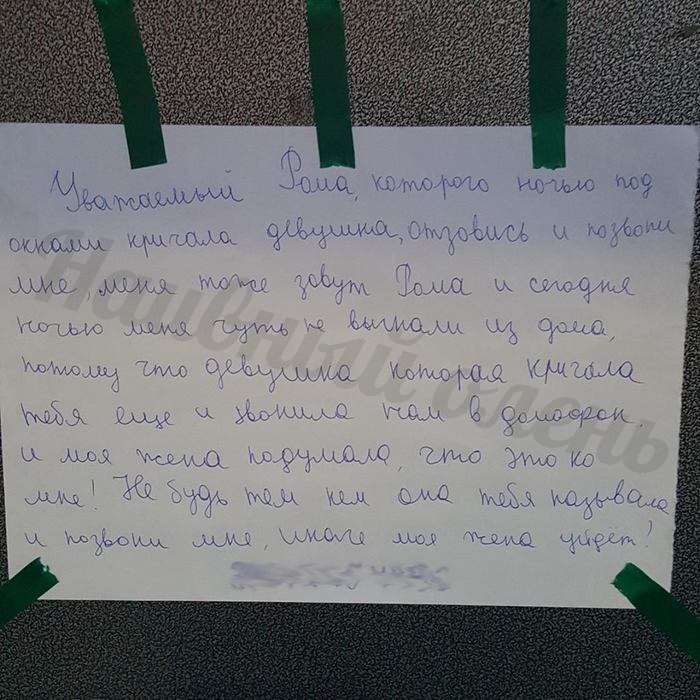 Уважаемый Рома, которого ночью под
окнами кричала девушка, отзовись и позвони
мне, меня тоже зовут Рома и сегодня
ночью меня чуть не выгнали из дома,
потому что девушка которая кричала
тебя еще и звонила нам в домофон,
и моя жена подумала, что это ко
мне! Не будь тем кем она тебя называла
и позвони мне, иначе моя жена уйдёт!
Наивный олень